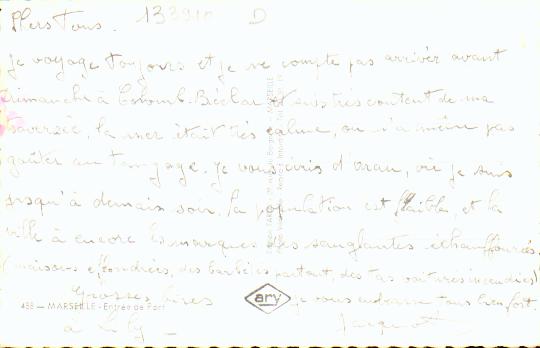 133910 D
Chers Tous.
Je voyage toujours et je ne compte pas arriver avant
dimanche à Colomb-Béchar et suis très content de ma
traversée, la mer était très calme, on n'a même pas
goûter au tangage. Je vous écris d'Oran, où je suis
jusqu'à demain soir. La population est faible, et la
ville à encore les marques des sanglantes échauffourées
(maisons effondrées, des barbelés partout, des tas voitures incendiées)
Grosses bises je vous embrasse tous bien fort.
ary
488 — MARSEILLE - Entrée de Port
à Lily